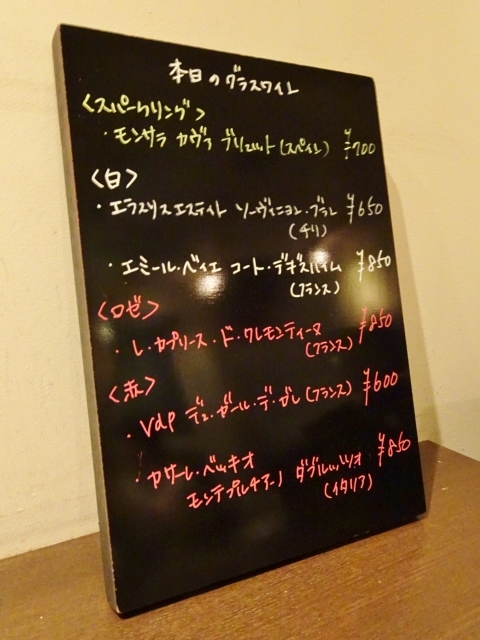 本日のグラスワイン
<スパークリング>
・モンサラ カヴァ ブリュット(スペイン) ¥700
<白>
・エラスリス エステイト ソーヴィニヨン・ブラン ¥650
(チリ)
・エミール・ベイエ コート・デギスハイム ¥850
(フランス)
<ロゼ>
・レ・カプリース・ド・クレモンティーヌ ¥850
(フランス)
<赤>
・Vdp デュ・ガール・デ・ガレ(フランス) ¥600
・カサーレ・ベッキオ
モンテプルチアーノ ダブルッツォ ¥850
(イタリア)